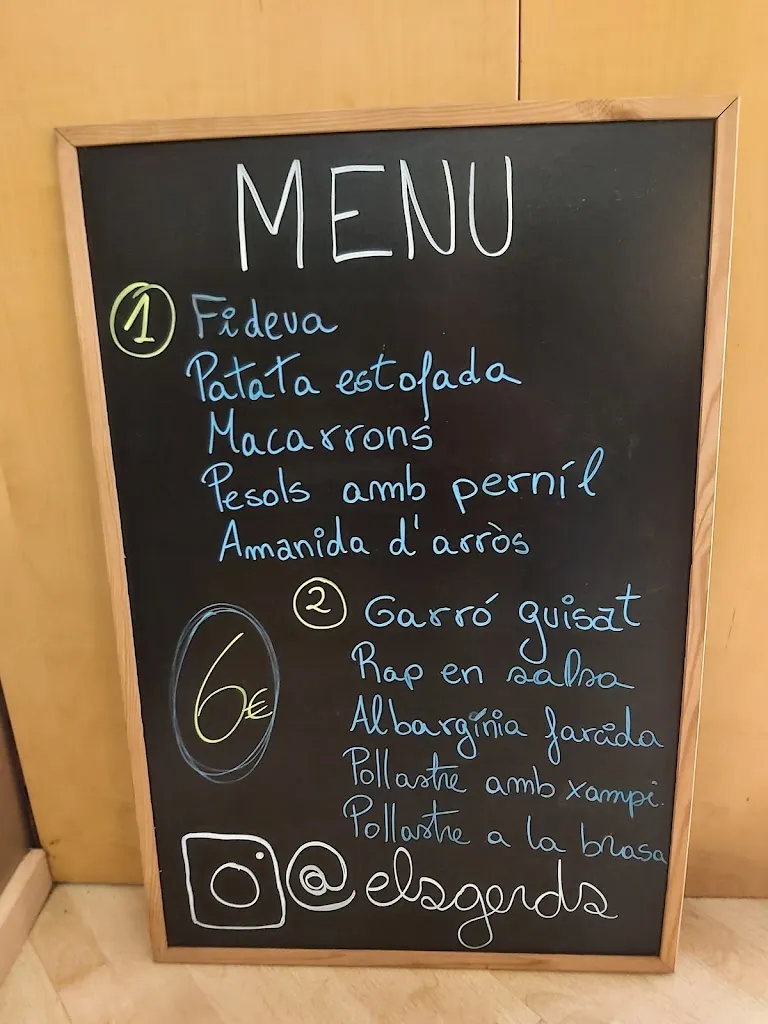 MENU
1 Fideua
Patata estofada
Macarrons
Pesols amb pernil
Amanida d'arròs
2 Garró guisat
Rap en salsa
Albargínia farcida
Pollastre amb xampi.
Pollastre a la brasa
6€
@elsgerds